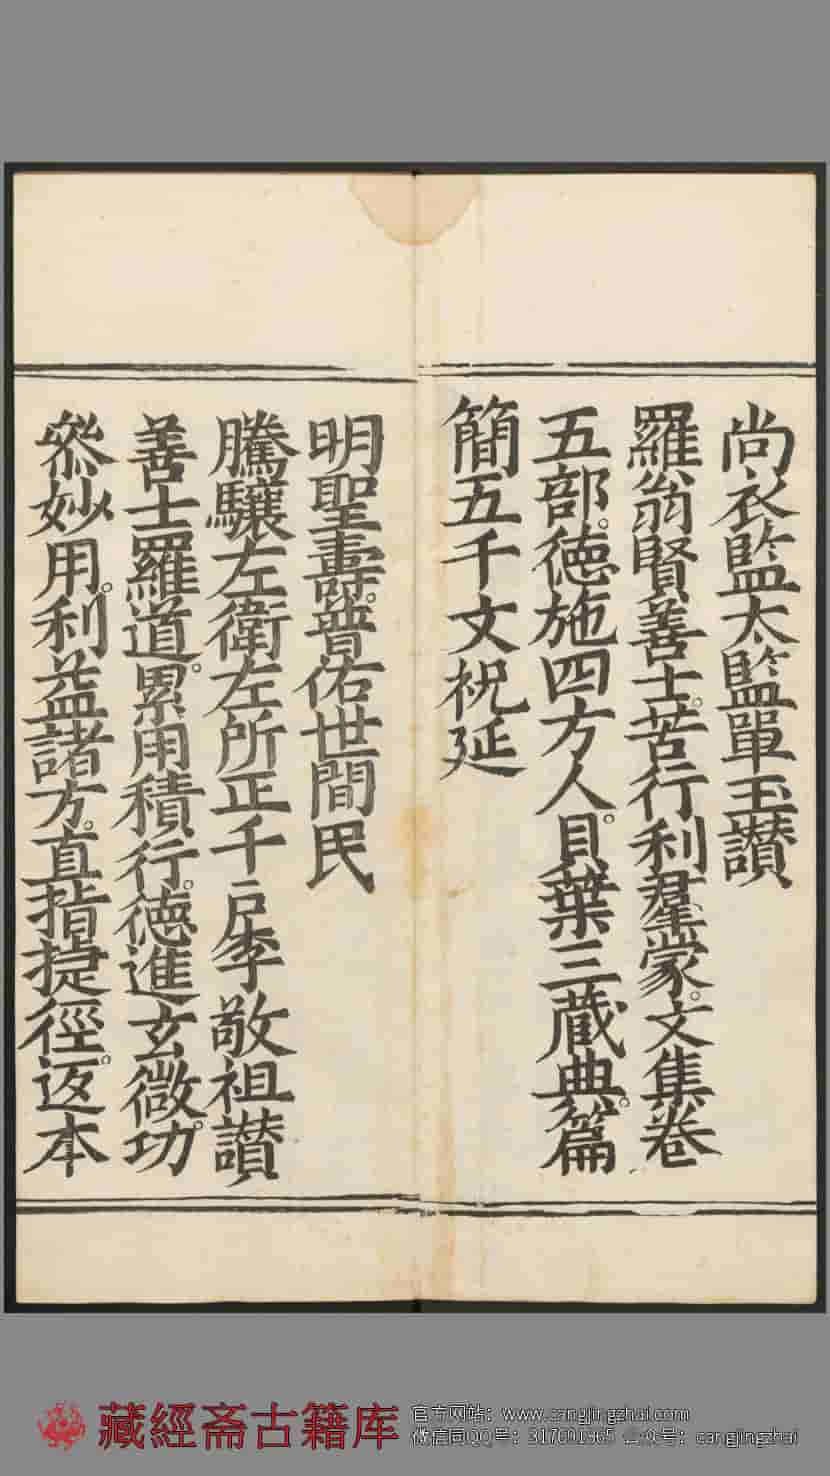 尚衣監太監單玉讃
羅翁賢善士。苦行利羣蒙。文集卷
五部。德施四方人。貝葉三蔵典。篇
簡五千文祝延
明聖壽。普佑世間民
騰驤左衛左所正千戶李敬祖讃
善士羅道。累用積行。德進玄微功。
叅妙用。利益諸方。直指捷徑。返本
藏經斋古籍库
官方网站：www.cangjingzhai.com
微信同QQ号：317091965 公众号：cangjingzhai